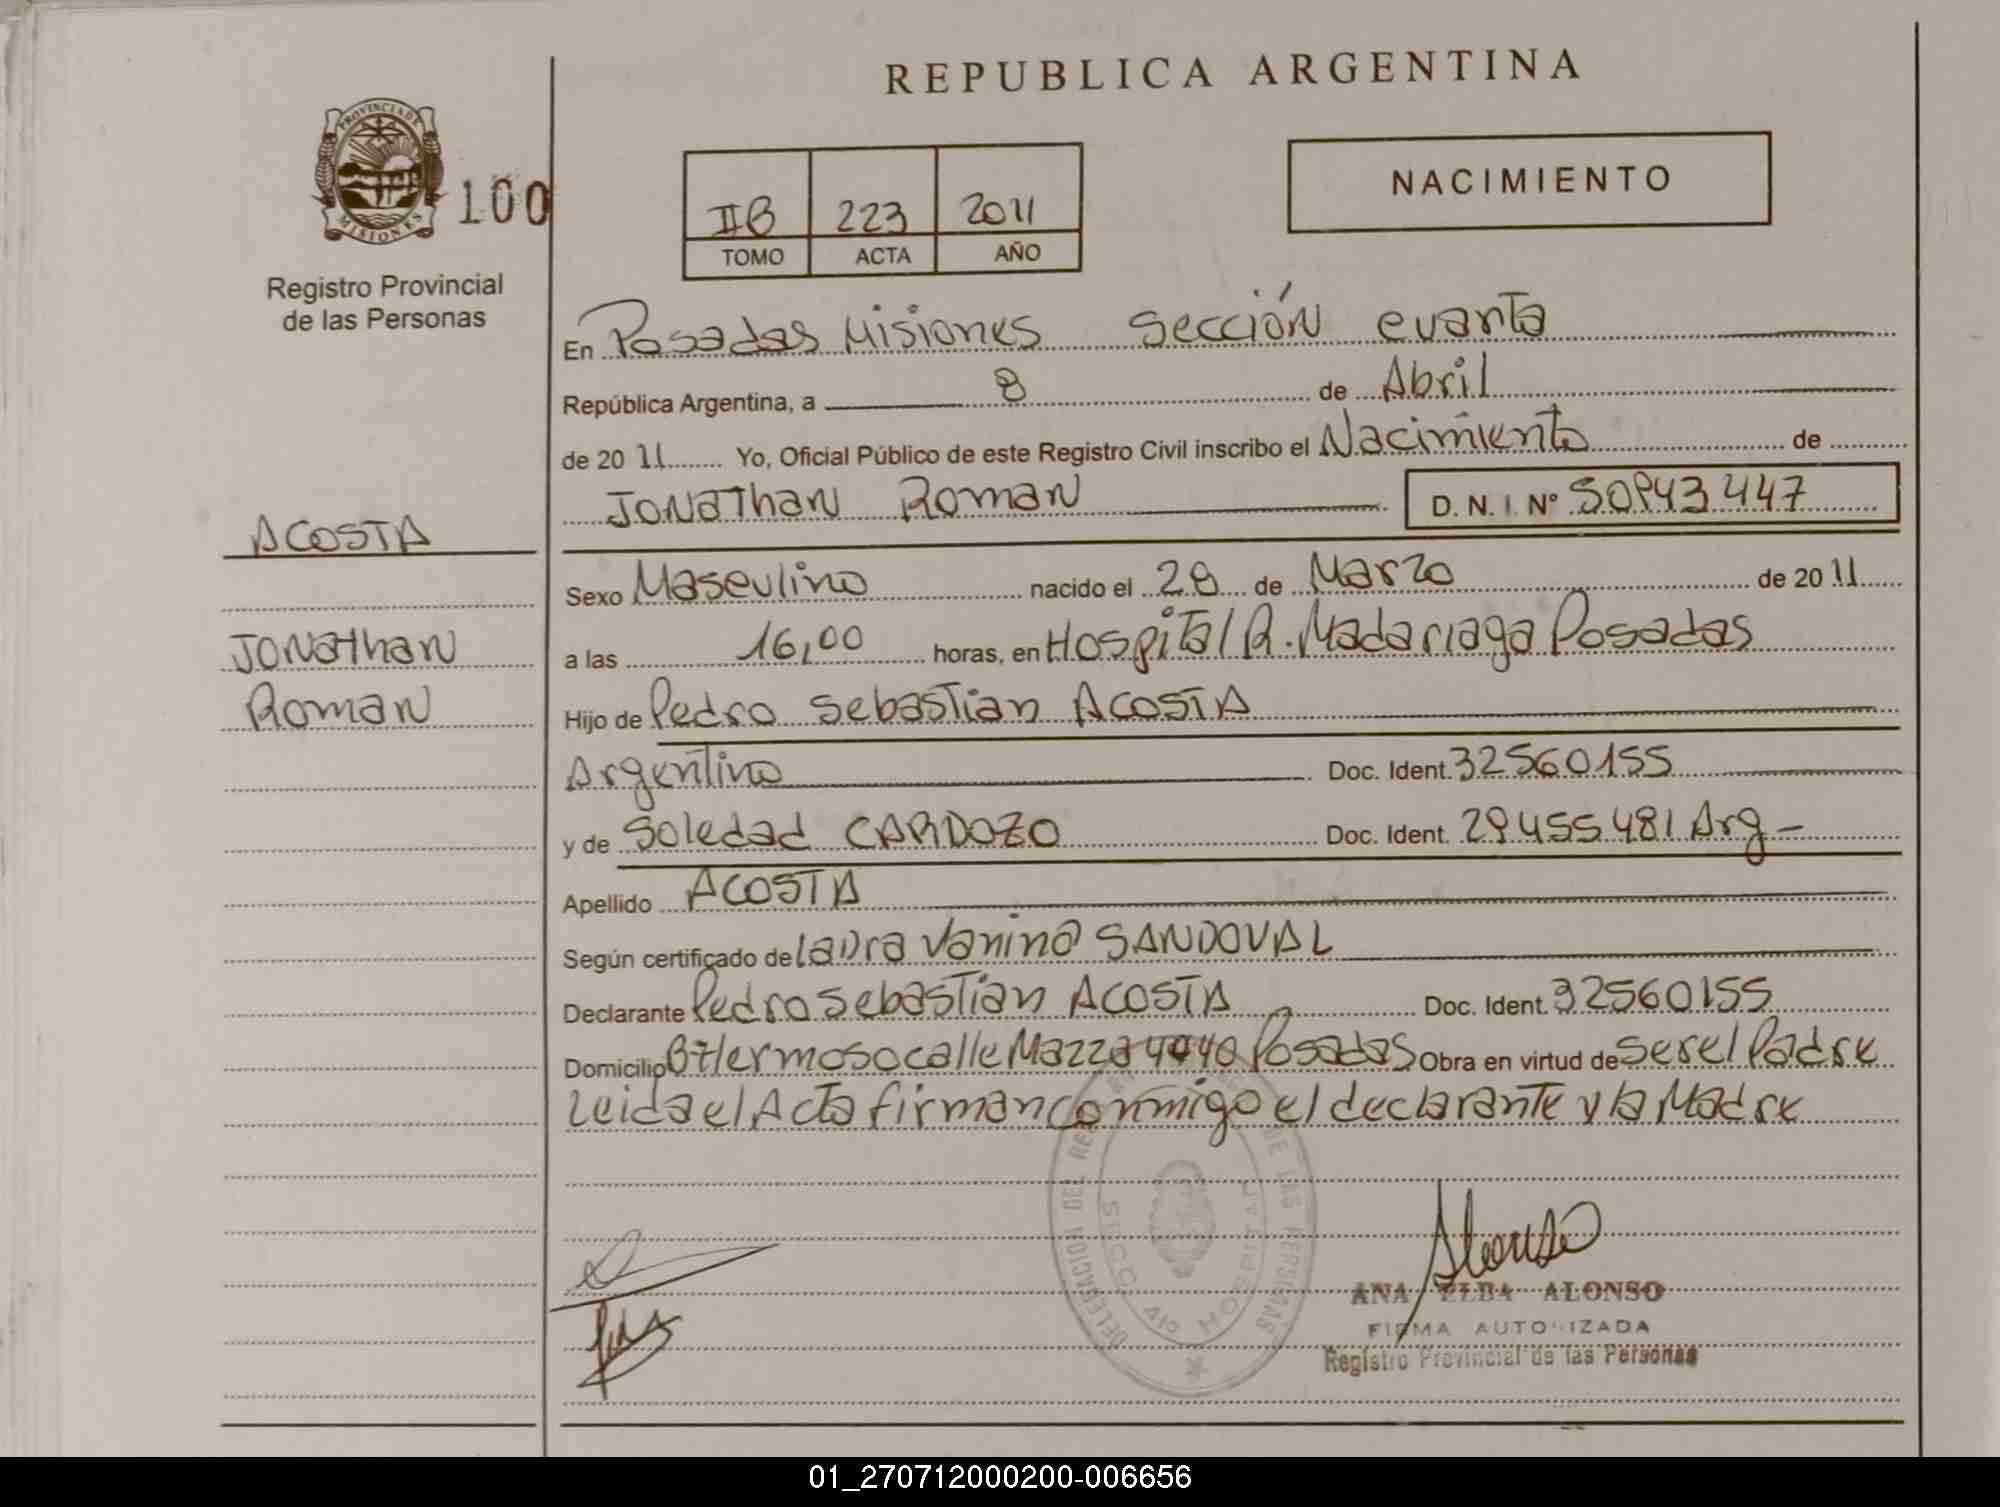 REPUBLICA ARGENTINA
PROVINCIA DE
MISIONES
100
IIB 223 2011
TOMO ACTA AÑO
NACIMIENTO
Registro Provincial
de las Personas
En Posadas Misiones Sección cuarta
República Argentina, a 8 de Abril
de 20 11 Yo, Oficial Público de este Registro Civil inscribo el Nacimiento de
Jonathan Roman D. N. I. Nº
ACOSTA
Jonathan
Roman
Sexo Masculino nacido el de Marzo de 20 11
a las 16,00 horas, en Hospital R. Madariaga Posadas
Hijo de Pedro Sebastian ACOSTA
Argentino Doc. Ident. 32560155
y de Soledad CARDOZO Doc. Ident. 29455481 Arg -
Apellido ACOSTA
Según certificado de Laura Vanina SANDOVAL
Declarante Pedro Sebastian ACOSTA Doc. Ident. 32560155
Domicilio Bº Hermoso calle Mazza Posadas Obra en virtud de ser el Padre
Leida el Acta firman conmigo el declarante y la Madre
DELEGACION DEL DE LAS PERSONAS
SECC. 4ta HOSPITAL
ANA ELBA ALONSO
FIRMA AUTORIZADA
Registro Provincial de las Personas
01_270712000200-006656